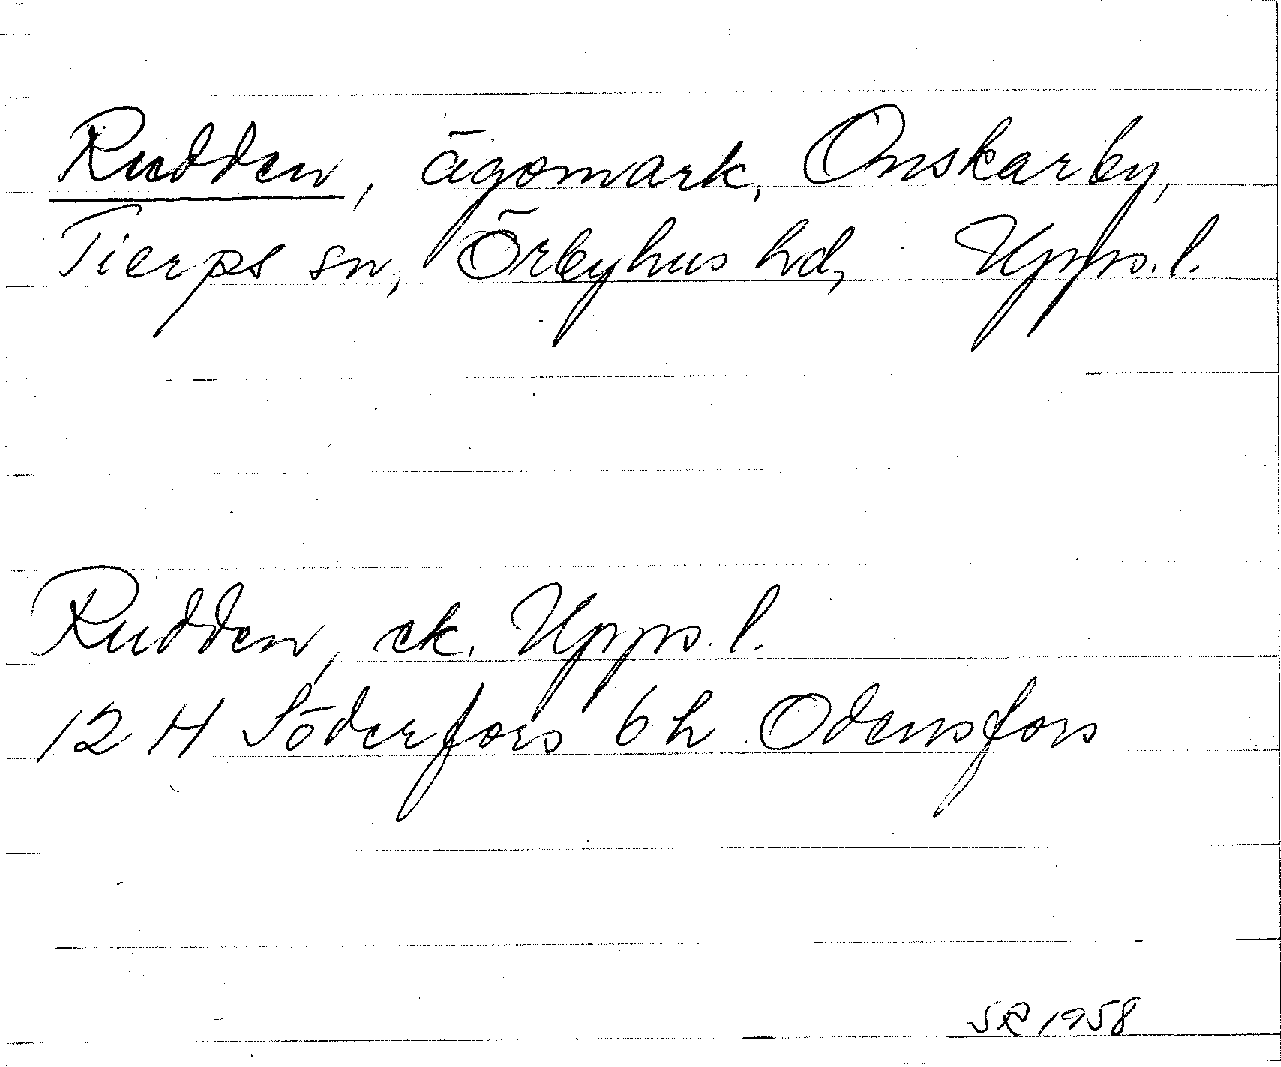 Rudden, ägomark, Onskarby,
Tierps sn, Örbyhus hd, Upps. l.
Rudden, ek. Upps. l.
12 H Söderfors 6 h Odensfors
SR 1958